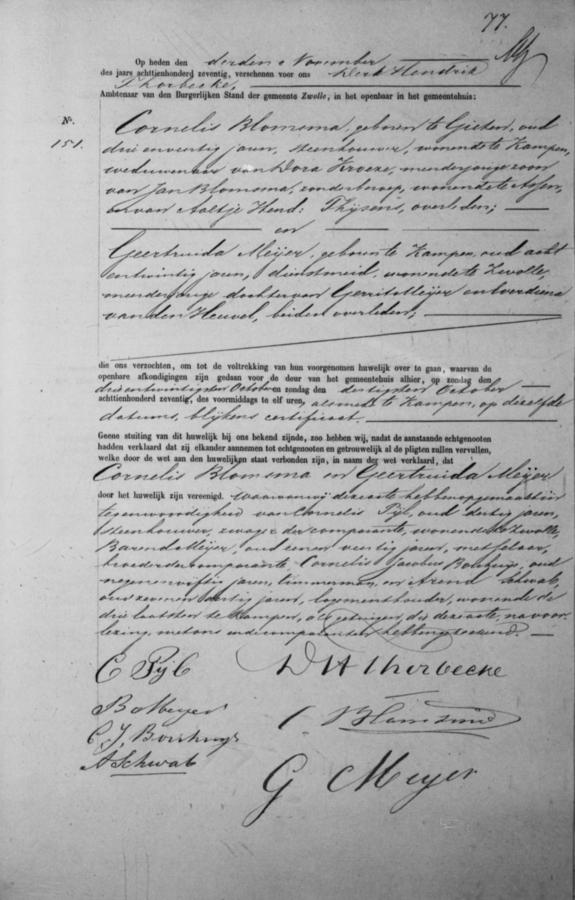 77.
Op heden den derden November
des jaars achttienhonderd zeventig, verschenen voor ons Derk Hendrik
Thorbecke,
Ambtenaar van den Burgerlijken Stand der gemeente Zwolle, in het openbaar in het gemeentehuis:
No.
151.
Cornelis Blomsma, geboren te Gieten, oud
drie en veertig jaren, steenhouwer, wonende te Kampen,
weduwenaar van Dora Kroeze, meerderjarige zoon
van Jan Blomsma, zonder beroep, wonende te Assen,
en van Aaltje Hend: Thijsens, overleden;
en
Geertruida Meijer, geboren te Kampen, oud acht
en twintig jaren, dienstmeid, wonende te Zwolle,
meerderjarige dochter van Gerrit Meijer en Everdina
van den Heuvel, beiden overleden;
die ons verzochten, om tot de voltrekking van hun voorgenomen huwelijk over te gaan, waarvan de
openbare afkondigingen zijn gedaan voor de deur van het gemeentehuis alhier, op zondag den
drie en twintigsten October en zondag den dertigsten October
achttienhonderd zeventig, des voormiddags te elf uren, alsmede te Kampen, op dezelfde
datums, blijkens certificaat.
Geene stuiting van dit huwelijk bij ons bekend zijnde, zoo hebben wij, nadat de aanstaande echtgenooten
hadden verklaard dat zij elkander aannemen tot echtgenooten en getrouwelijk al de pligten zullen vervullen,
welke door de wet aan den huwelijken staat verbonden zijn, in naam der wet verklaard, dat
Cornelis Blomsma en Geertruida Meijer
door het huwelijk zijn vereenigd. Waarvan wij deze acte hebben opgemaakt in
tegenwoordigheid van Cornelis Pijl, oud dertig jaren,
steenhouwer, zwager der comparante, wonende te Zwolle,
Barend Meijer, oud een en veertig jaren, metselaar,
broeder der comparante, Cornelis Jacobus, oud
negen en vijftig jaren, timmerman, en Arend Schwab,
oud zeven en dertig jaren, logementhouder, wonende de
drie laatsten te Kampen, als getuigen, die deze acte, na voor-
lezing, met ons en de comparanten hebben geteekend.
C Pijl
DH Thorbecke
B Meijer
C. Blomsma
C. J.
A Schwab
G Meyer